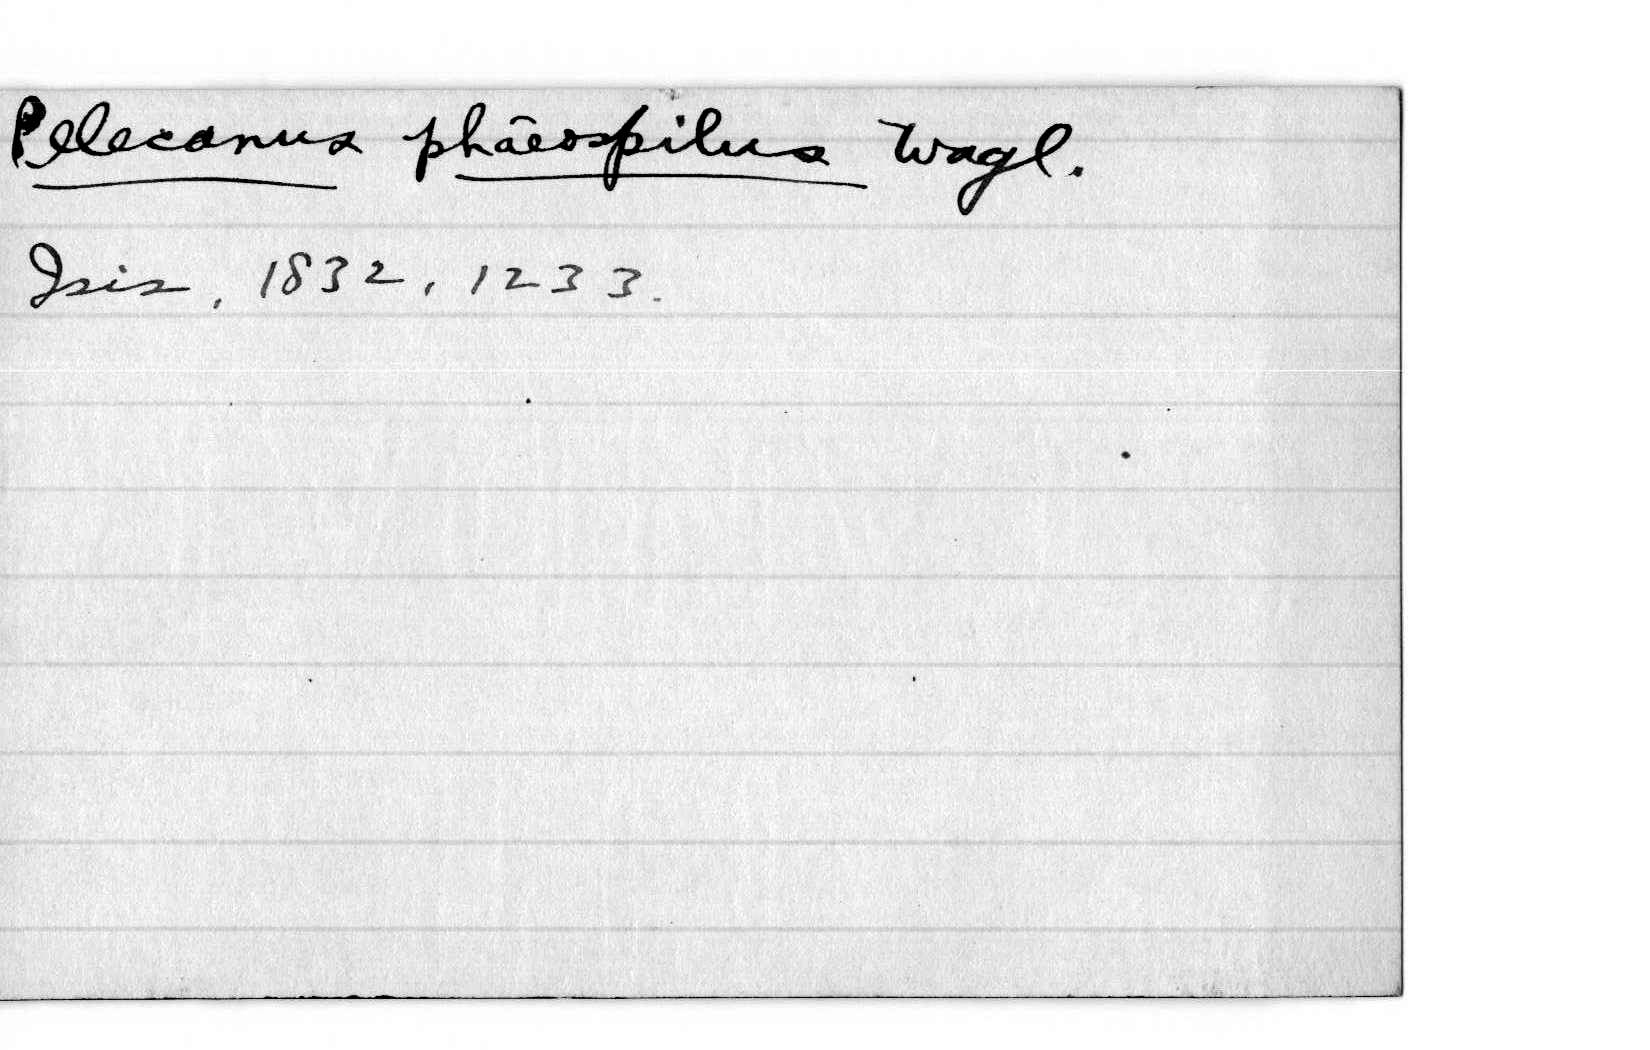 Pelecanus phaeospilus Wagl.
Isis, 1832, 1233.